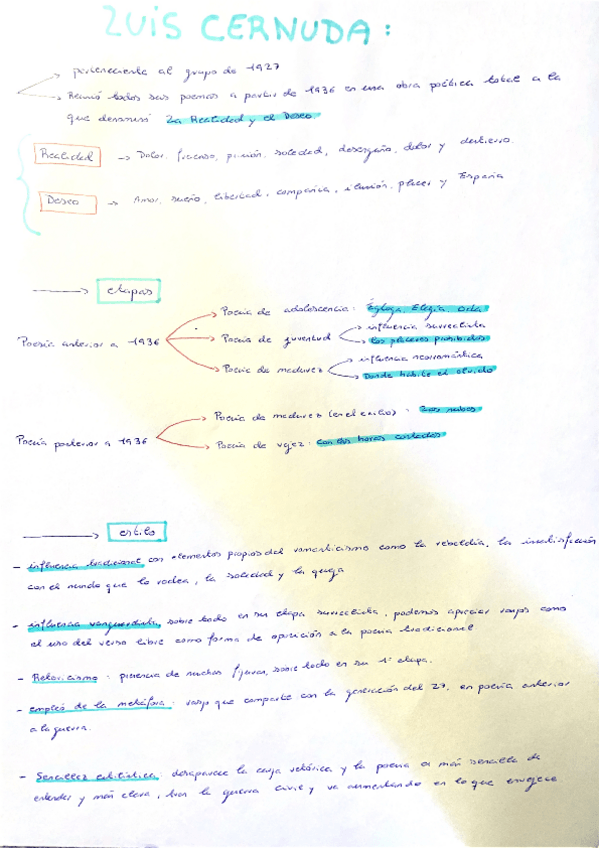 LUIS CERNUDA:
perteneciente al grupo de 1927
Reunió todos sus poemas a partir de 1936 en una obra poética total a la
que denominó La Realidad y el Deseo
Realidad → Dolor, fracaso, prisión, soledad, desengaño, dolor y destierro.
Deseo → Amor, sueño, libertad, compañía, ilusión, placer y España
etapas
Poesía de adolescencia: Égloga, Elegía, Oda
influencia surrealista
Poesía anterior a 1936 Poesía de juventud
Los placeres prohibidos
influencia neorromántica
Poesía de madurez
Donde habite el olvido
Poesía de madurez (en el exilio): Las nubes
Poesía posterior a 1936
Poesía de vejez: Con las horas contadas
estilo
- influencia tradicional con elementos propios del romanticismo como la rebeldía, la insatisfacción
con el mundo que lo rodea, la soledad y la queja
- influencia vanguardista, sobre todo en su etapa surrealista, podemos apreciar rasgos como
el uso del verso libre como forma de oposición a la poesía tradicional
- Retoricismo: presencia de muchas figuras, sobre todo en su 1ª etapa.
- empleo de la metáfora: rasgo que comparte con la generación del 27, en poesía anterior
a la guerra.
- Sencillez estilística: desaparece la carga retórica y la poesía es más sencilla de
entender y más clara, tras la guerra civil y va aumentando en lo que envejece